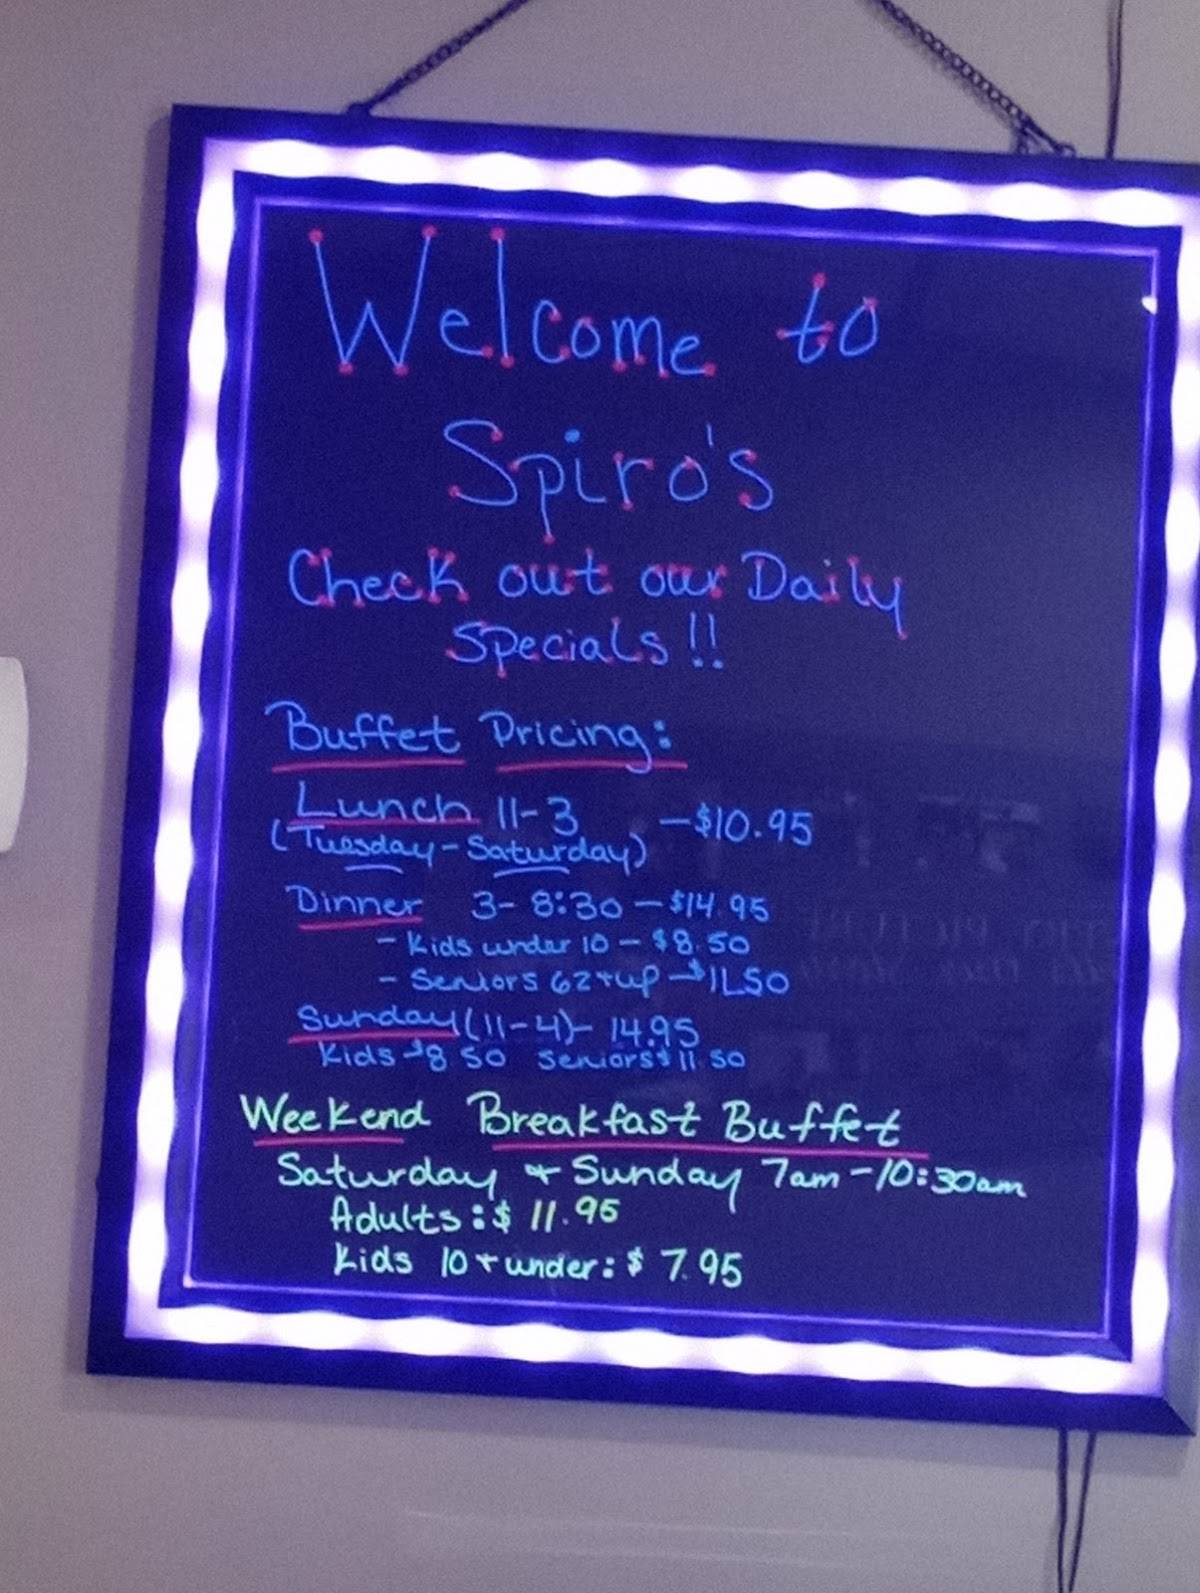 Welcome to
Spiro's
Check out our Daily
Specials!!
Buffet Pricing:
Lunch 11-3 -$10.95
(Tuesday-Saturday)
Dinner 3-8:30-$14.95
- Kids under 10-$8.50
- Seniors 62+up-$11.50
Sunday(11-4)-14.95
Kids-$8.50 Seniors$11.50
Weekend Breakfast Buffet
Saturday + Sunday 7am-10:30am
Adults:$ 11.95
Kids 10+under:$ 7.95